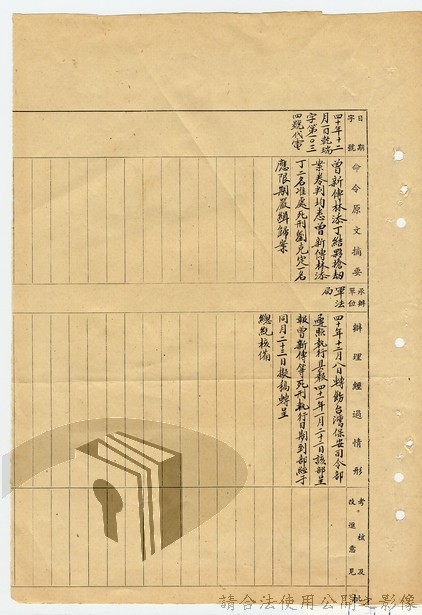 日期
字號
四十年十二
月一日乾瑞
字第一〇三
四號代電
命令原文摘要
曾新傳林添丁結夥搶劫
案卷判均悉曾新傳林添
丁二名准處死刑劉克定一名
應限期嚴緝歸案
承辦
單位
軍法
局
辦理經過情形
四十年十二月八日轉飭台灣保安司令部
遵照執行具報四十一年一月二十二日該部呈
報曾新傳等死刑執行日期到部經于
同月二十三日擬稿轉呈
總統核備
考核及
改進意見
批
請合法使用公開之影像